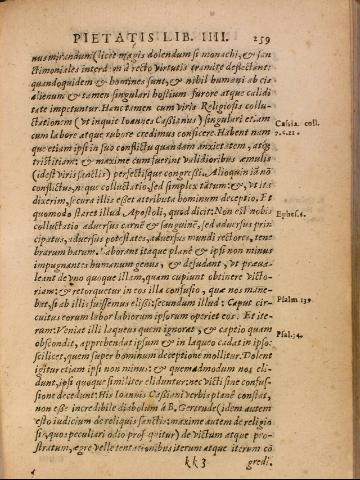 PIETATIS LIB. IIII. 259
nus mirandum (licet magis dolendum) si monachi, & san
ctimoniales interdum à recto virtutis tramite deflectant:
quandoquidem & homines sunt, & nihil humani ab eis
alienum & tamen singulari hostium furore atque calidi
tate impetuntur. Hanc tamen cum viris Religiosis collu-
ctationem (vt inquit Ioannes Caßianus) singulari etiam
cum labore atque rubore credimus conficere. Habent nam
que etiam ipsi in suo conflictu quandam anxietatem, atque
tristitiam: & maximè cum fuerint validioribus æmulis
(idest viris sanctis) perfectisque congreßi. Alioquin iã nõ
conflictus, neque colluctatio, sed simplex tãtum: &, vt ita
dixerim, secura illis esset attributa hominum deceptio. Et
quomodo staret illud Apostoli, quod dicit: Non est nobis
colluctatio aduersus carnē & sanguinē, sed aduersus prin
cipatus, aduersus potestates, aduersus mundi rectores, tene
brarum harum. Laborant itaque planè & ipsi non minus
impugnantes humanum genus, & desudant, vt præua-
leant: de quo quoque illam, quam cupiunt obtinere victo-
riam: & retorquetur in eos illa confusio, quæ nos mane-
bat, si ab illis fuissemus elisi: secundum illud: Caput cir-
cuitus eorum labor labiorum ipsorum operiet eos. Et ite-
rum: Veniat illi laqueus quem ignorat, & captio quam
abscondit, apprehendat ipsum & in laqueo cadat in ipso:
scilicet, quem super hominum deceptione mollitur. Dolent
igitur etiam ipsi non minus: & quemadmodum nos eli-
dunt, ipsi quoque similiter eliduntur: nec victi sine confus-
sione decedunt: His Ioannis Caßiani verbis planè constat,
non esse incredibile diabolum à B. Gertrude (idem autem
esto iudicium de reliquis sanctis: maximè autem de religio
sis, quos peculiari odio prosequitur) de victum atque pro-
stratum, ægre velle tentationibus iterum atque iterum cõ
kk3 gredi.
Caßia. coll.
7. c. 21.
Ephes. 6.
Psalm 139.
Psal. 34.